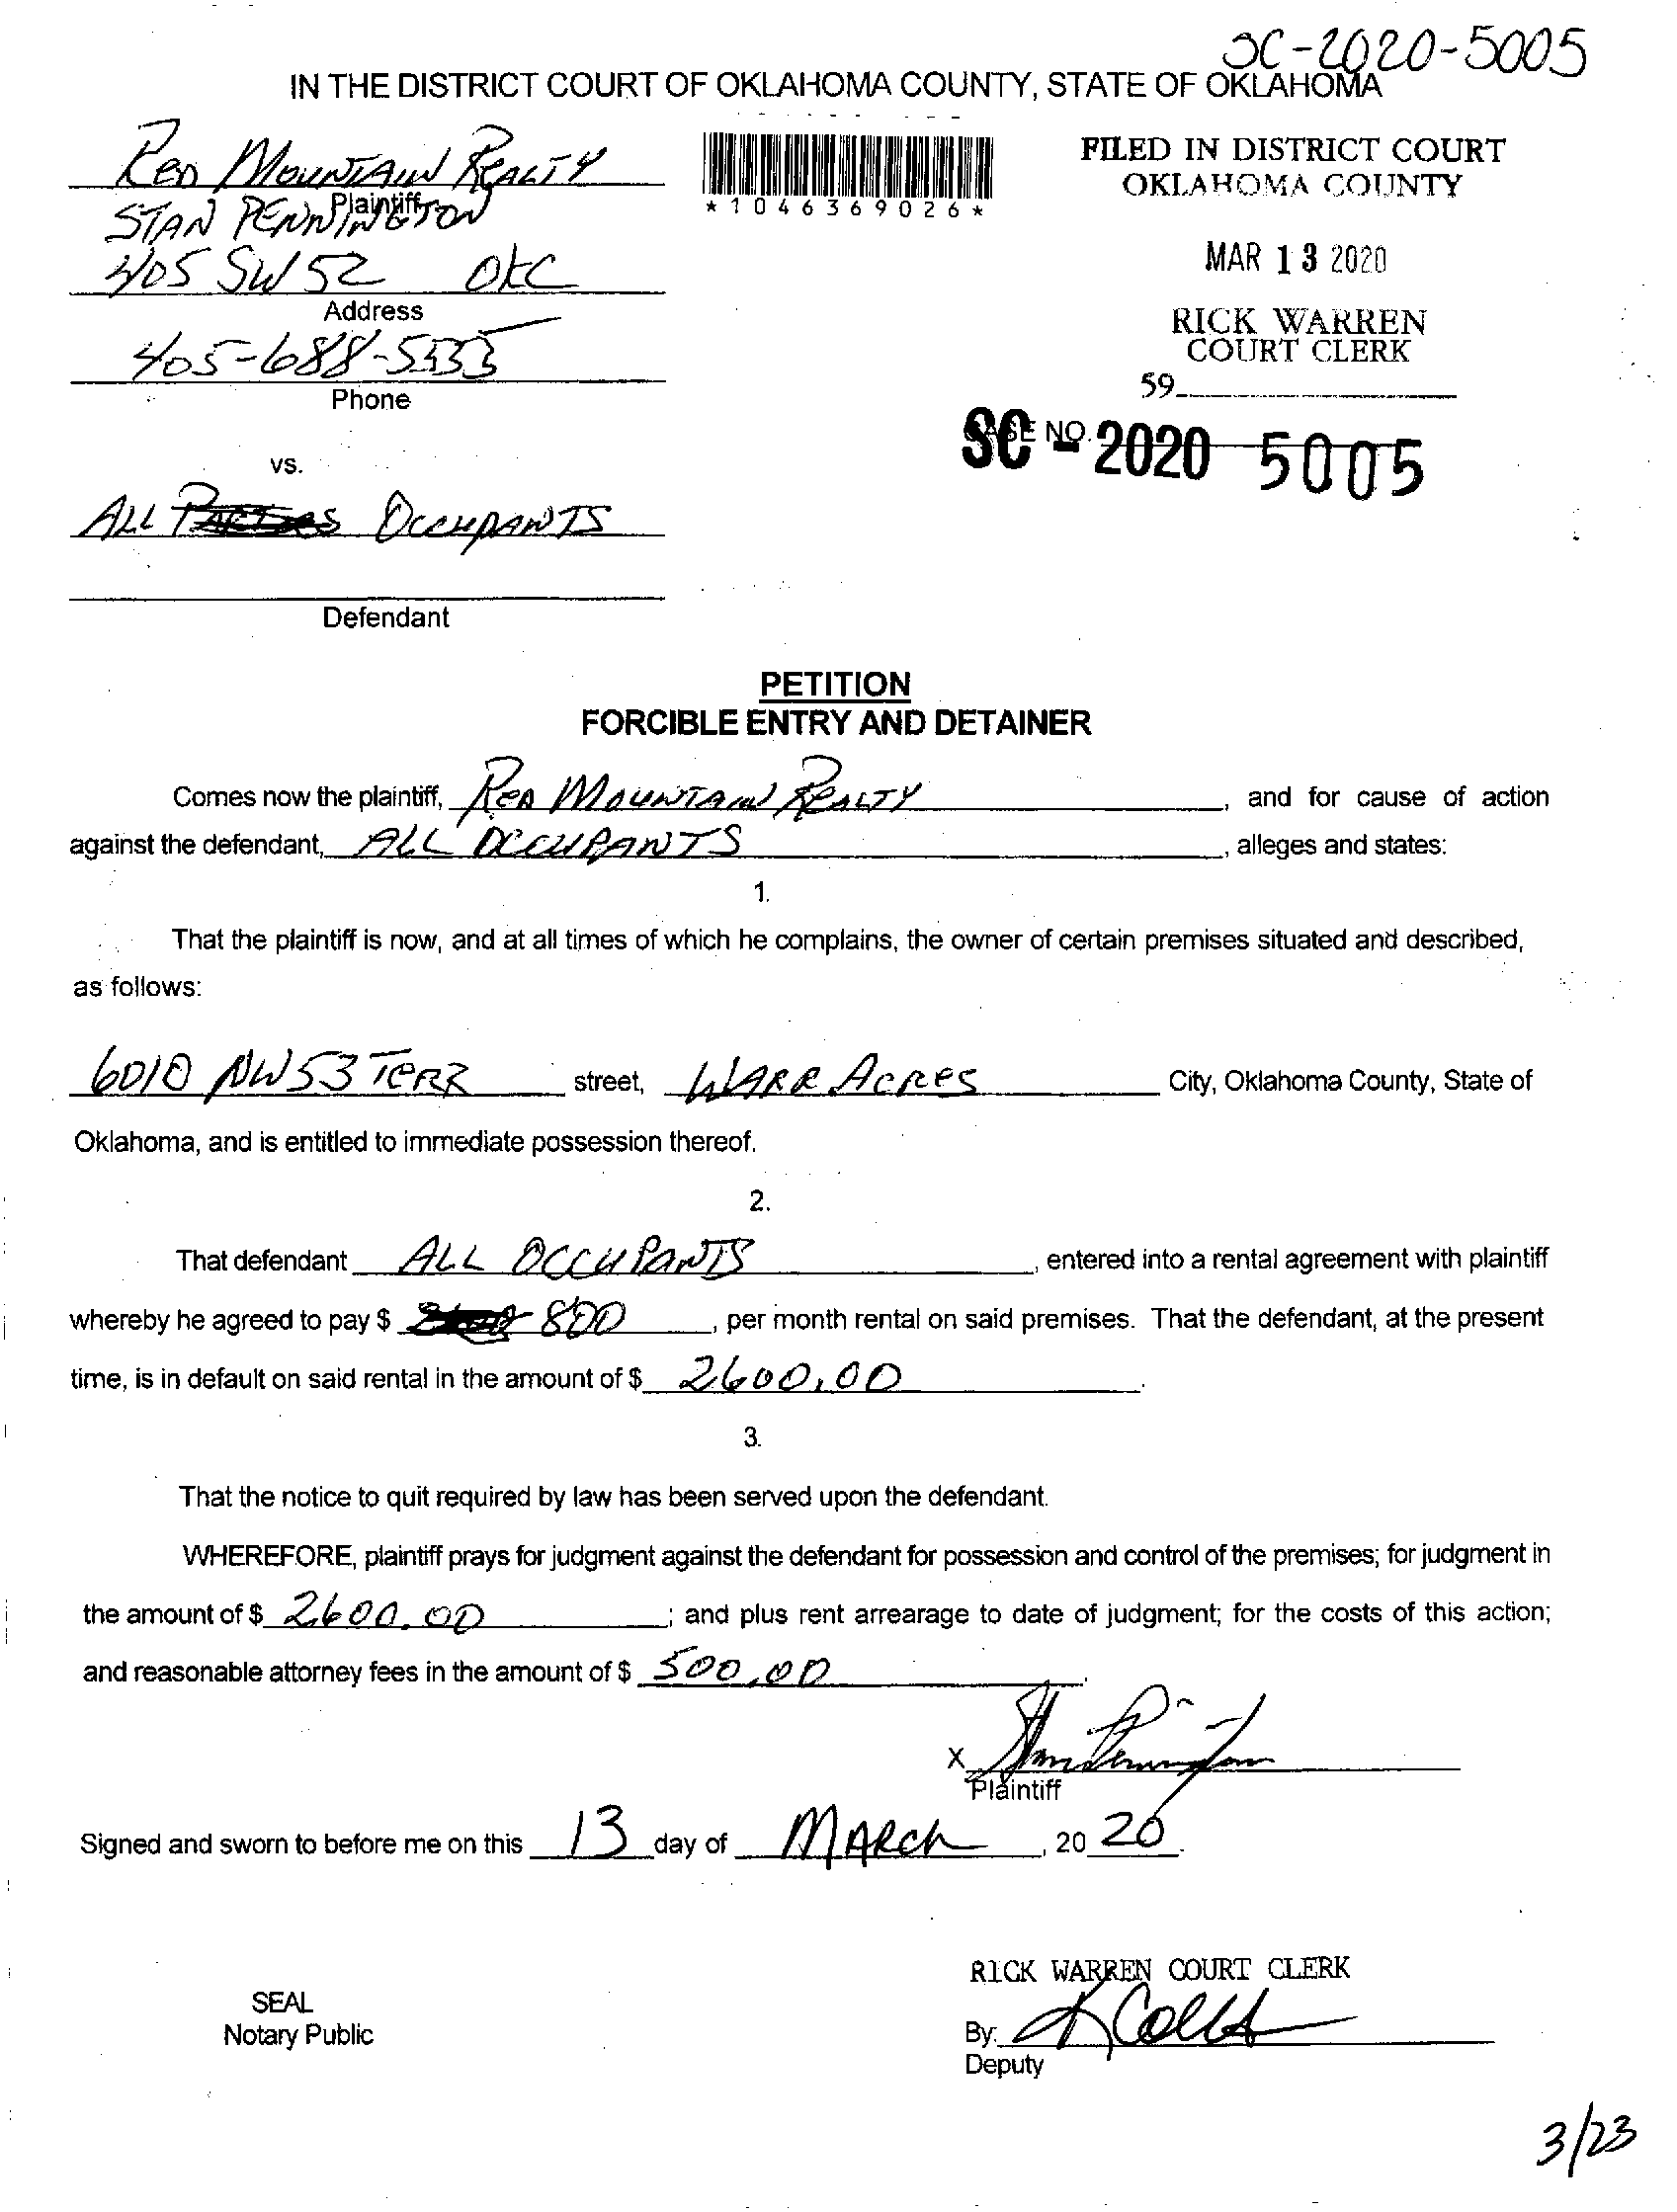 SC-2020-5005
IN THE DISTRICT COURT OF OKLAHOMA COUNTY, STATE OF OKLAHOMA
RED MOUNTAIN REALTY
Plaintiff
STAN PENNINGTON
405 SW 52 OKC
Address
405-688-5333
Phone
*1046369026*
FILED IN DISTRICT COURT
OKLAHOMA COUNTY
MAR 13 2020
RICK WARREN
COURT CLERK
59
CASE NO.
SC - 2020 5005
vs.
ALL OCCUPANTS
Defendant
PETITION
FORCIBLE ENTRY AND DETAINER
Comes now the plaintiff, RED MOUNTAIN REALTY, and for cause of action
against the defendant, ALL OCCUPANTS, alleges and states:
1.
That the plaintiff is now, and at all times of which he complains, the owner of certain premises situated and described,
as follows:
6010 NW 53 TERR street, WARR ACRES City, Oklahoma County, State of
Oklahoma, and is entitled to immediate possession thereof.
2.
That defendant ALL OCCUPANTS, entered into a rental agreement with plaintiff
whereby he agreed to pay $ 800, per month rental on said premises. That the defendant, at the present
time, is in default on said rental in the amount of $ 2600.00.
3.
That the notice to quit required by law has been served upon the defendant.
WHEREFORE, plaintiff prays for judgment against the defendant for possession and control of the premises; for judgment in
the amount of $ 2600.00; and plus rent arrearage to date of judgment; for the costs of this action;
and reasonable attorney fees in the amount of $ 500.00.
X Stan Pennington
Plaintiff
Signed and sworn to before me on this 13 day of MARCH, 20 20.
RICK WARREN COURT CLERK
SEAL
Notary Public
By:
Deputy
3/23